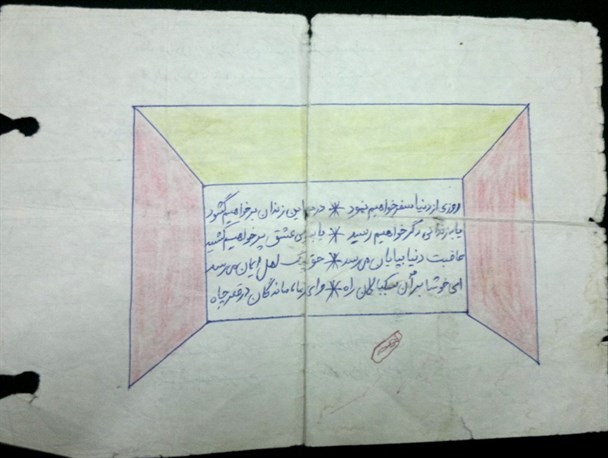 روزی از دنیا سفر خواهیم نمود * این زندان بر خواهیم گشود
یا به زندانی دگر خواهیم رسید * یا عشق پر خواهیم کشید
عاقبت دنیا بپایان می رسد * اهل ایمان می رسد
ای خوشا بر آن سبکبالان راه * وای بر ما، ماندگان در قعر چاه